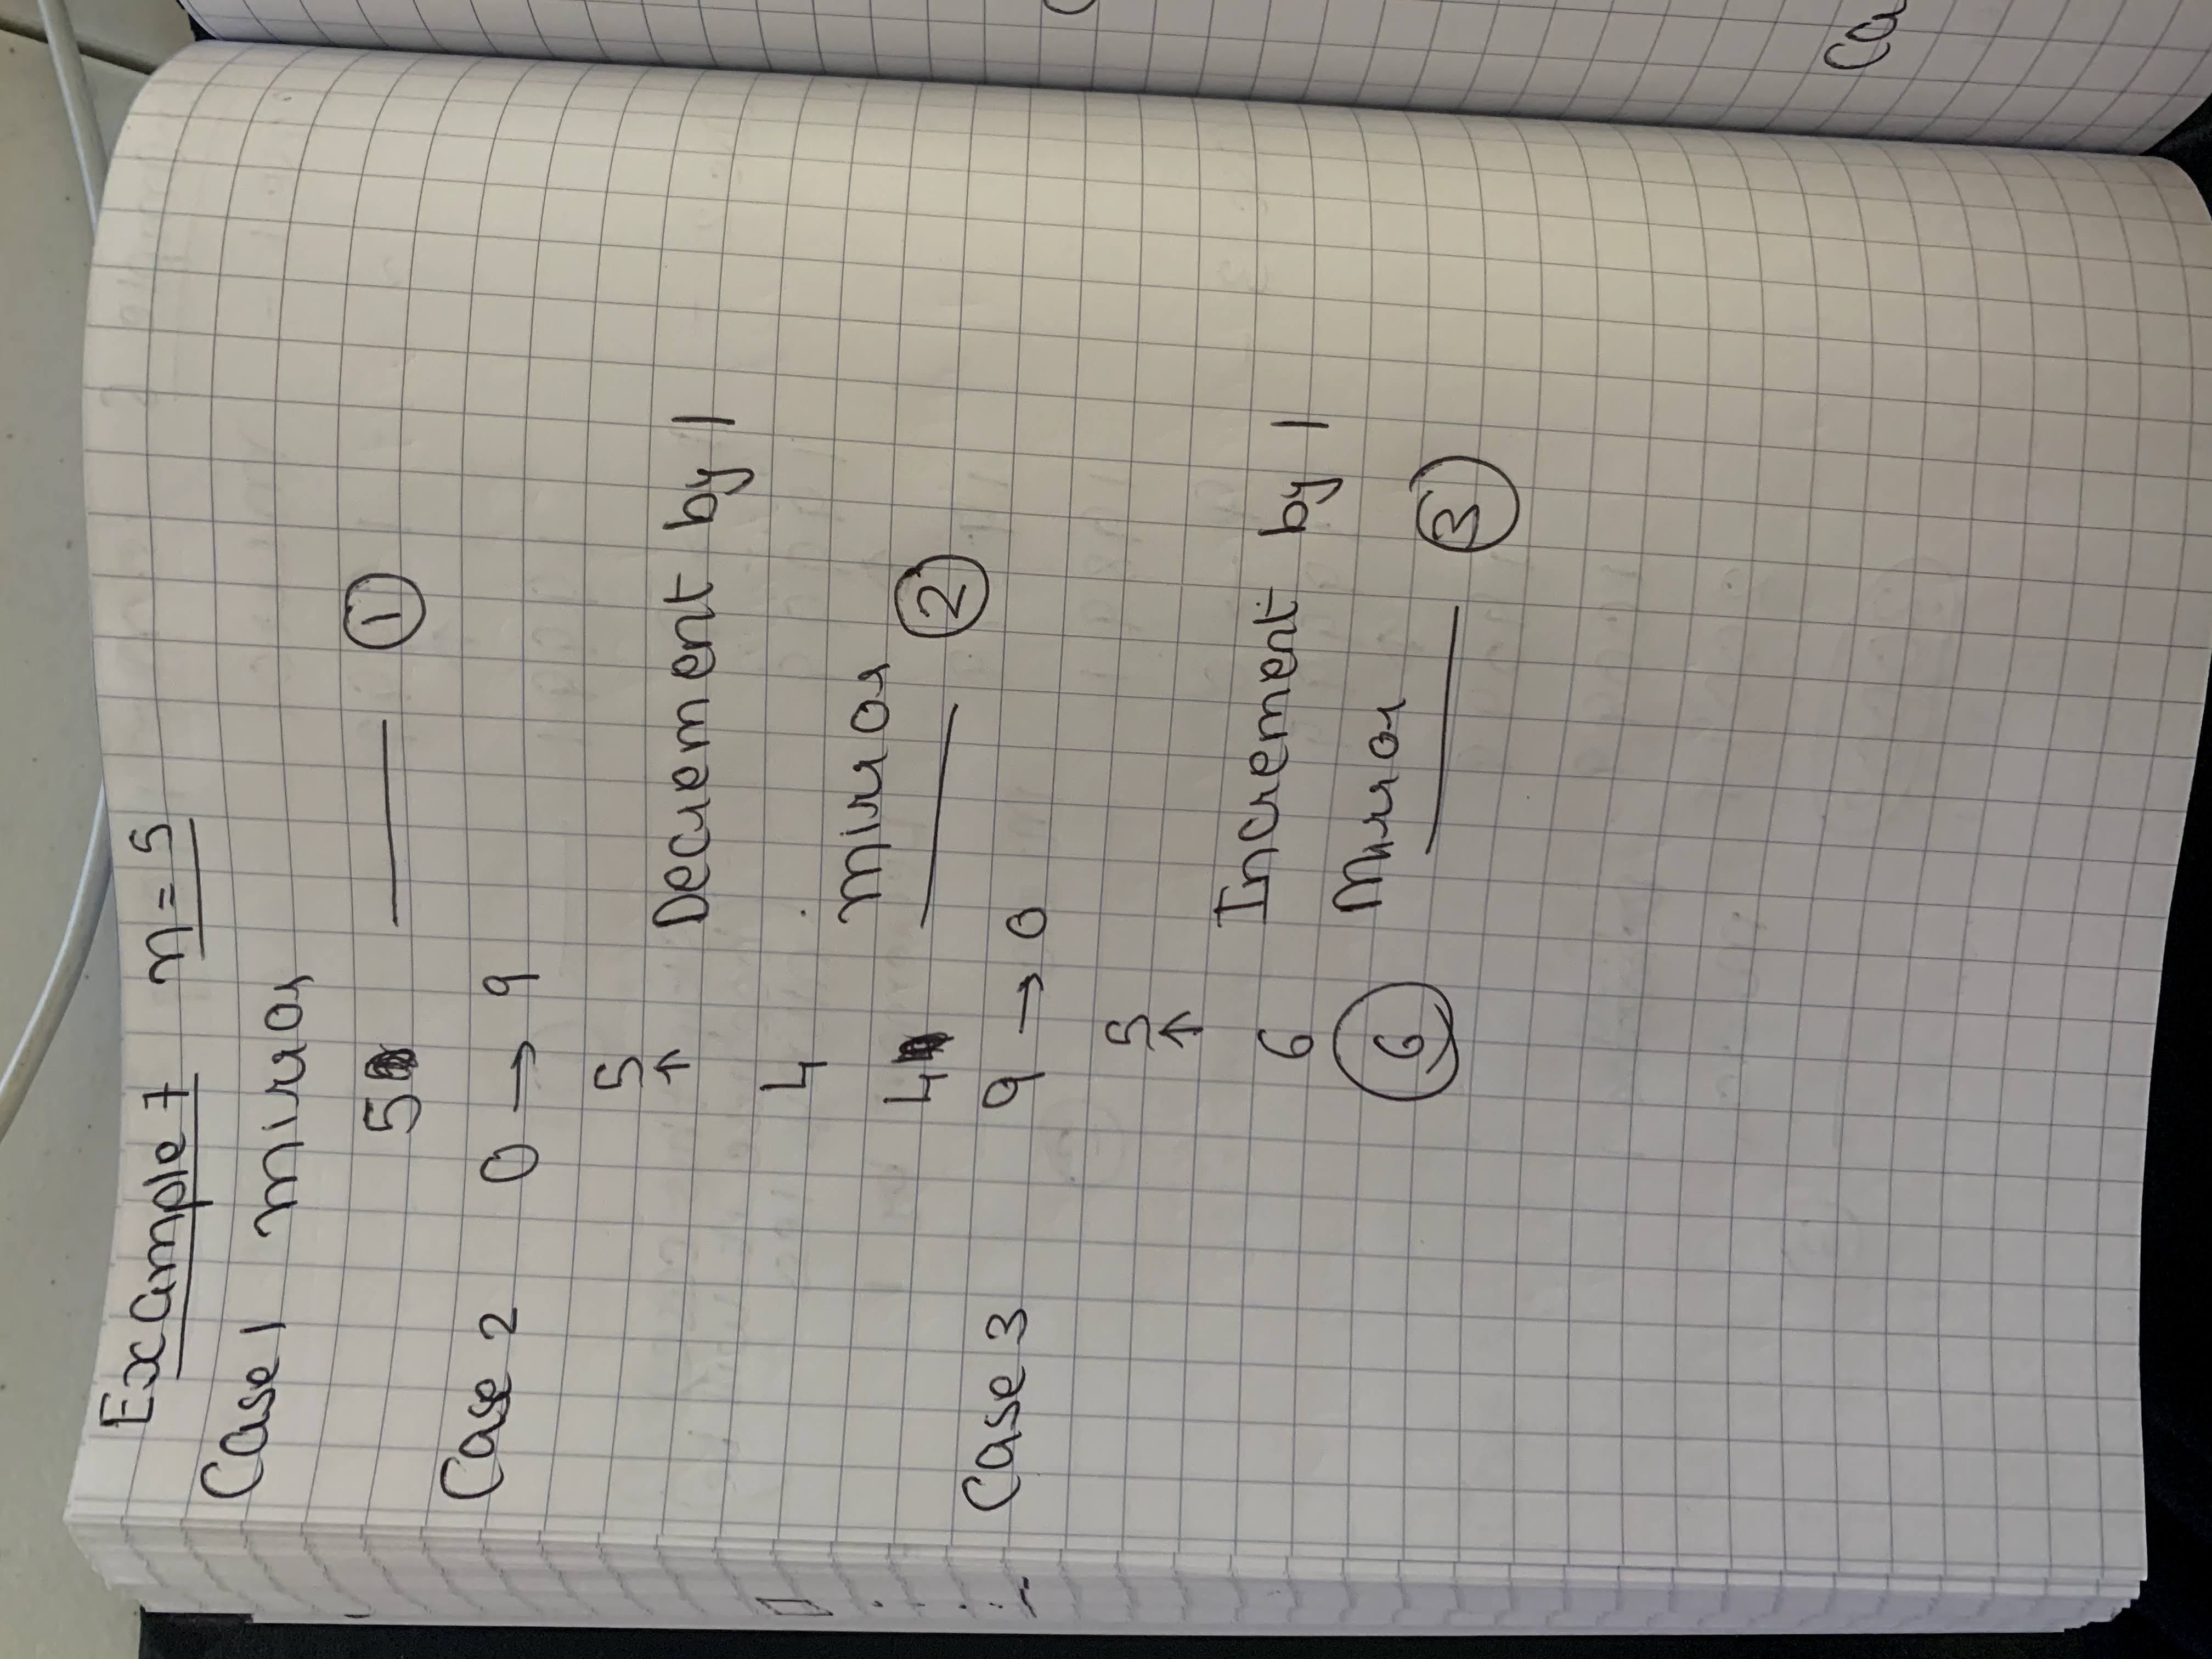 Example 7 n = 5
Case 1 mirror
5 ①
Case 2 0 → 9
5
↑ Decrement by 1
4
mirror
4 ②
Case 3 9 → 0
5
↑
Increment by 1
6
Mirror
6 ③
Ca